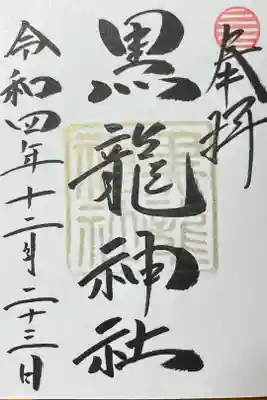 奉拝
黒龍神社
令和四年十二月二十三日